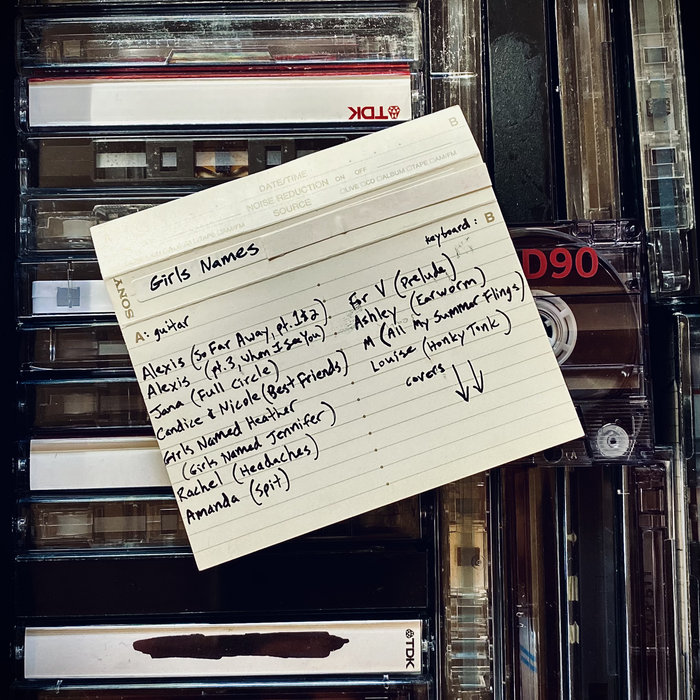 TDK
B
DATE/TIME
NOISE REDUCTION ON OFF
SOURCE LIVE CD ALBUM TAPE AM/FM
ALBUM TAPE AM/FM
Girls Names
SONY
A: guitar
Alexis (So Far Away, pt. 1&2)
Alexis (pt. 3, When I See You)
Jana (Full Circle)
Candice & Nicole (Best Friends)
Girls Named Heather
(Girls Named Jennifer)
Rachel (Headaches)
Amanda (Spit)
keyboard: B
For V (Prelude)
Ashley (Earworm)
M (All My Summer Flings)
Louise (Honky Tonk)
covers ↓↓
D90
TDK